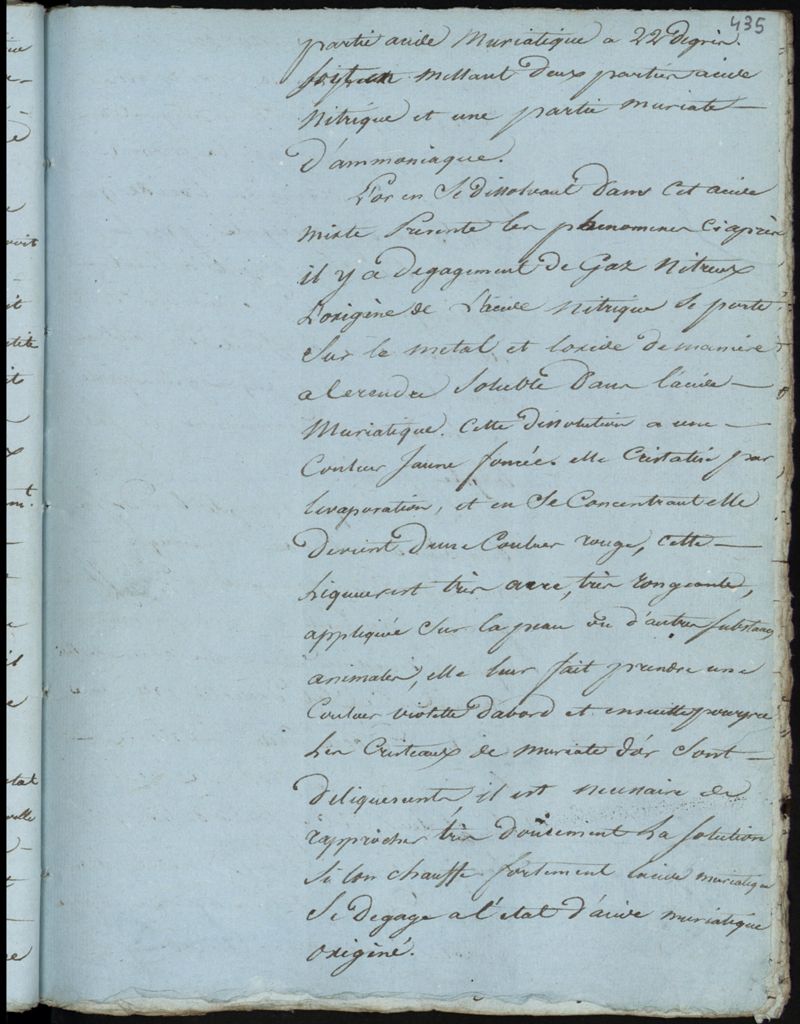 435
partie acide Muriatique a 22 Degrés.
soit en mettant deux parties acide
Nitrique et une partie muriate
D'ammoniaque.
L'or en se dissolvant dans cet acide
mixte Presente les phenomenes ci après
il y a degagement de Gaz Nitreux
L'oxigène de L'acide Nitrique se porte
sur le metal et l'oxide de maniere
a le rendre soluble dans l'acide
Muriatique. Cette dissolution a une
Couleur jaune foncée. elle cristalise par
l'evaporation, et en se Concentrant elle
devient d'une Couleur rouge, cette
Liqueur est très acre, très rongeante,
appliquée sur la peau ou d'autres substances
animales, elle leur fait prendre une
Couleur violette d'abord et ensuitte pourpre
Les Cristeaux de muriate d'or sont
deliquesents, il est necessaire de
rapprocher très doucement la solution
si l'on chauffe fortement l'acide muriatique
se degage a l'etat d'acide muriatique
oxigèné.